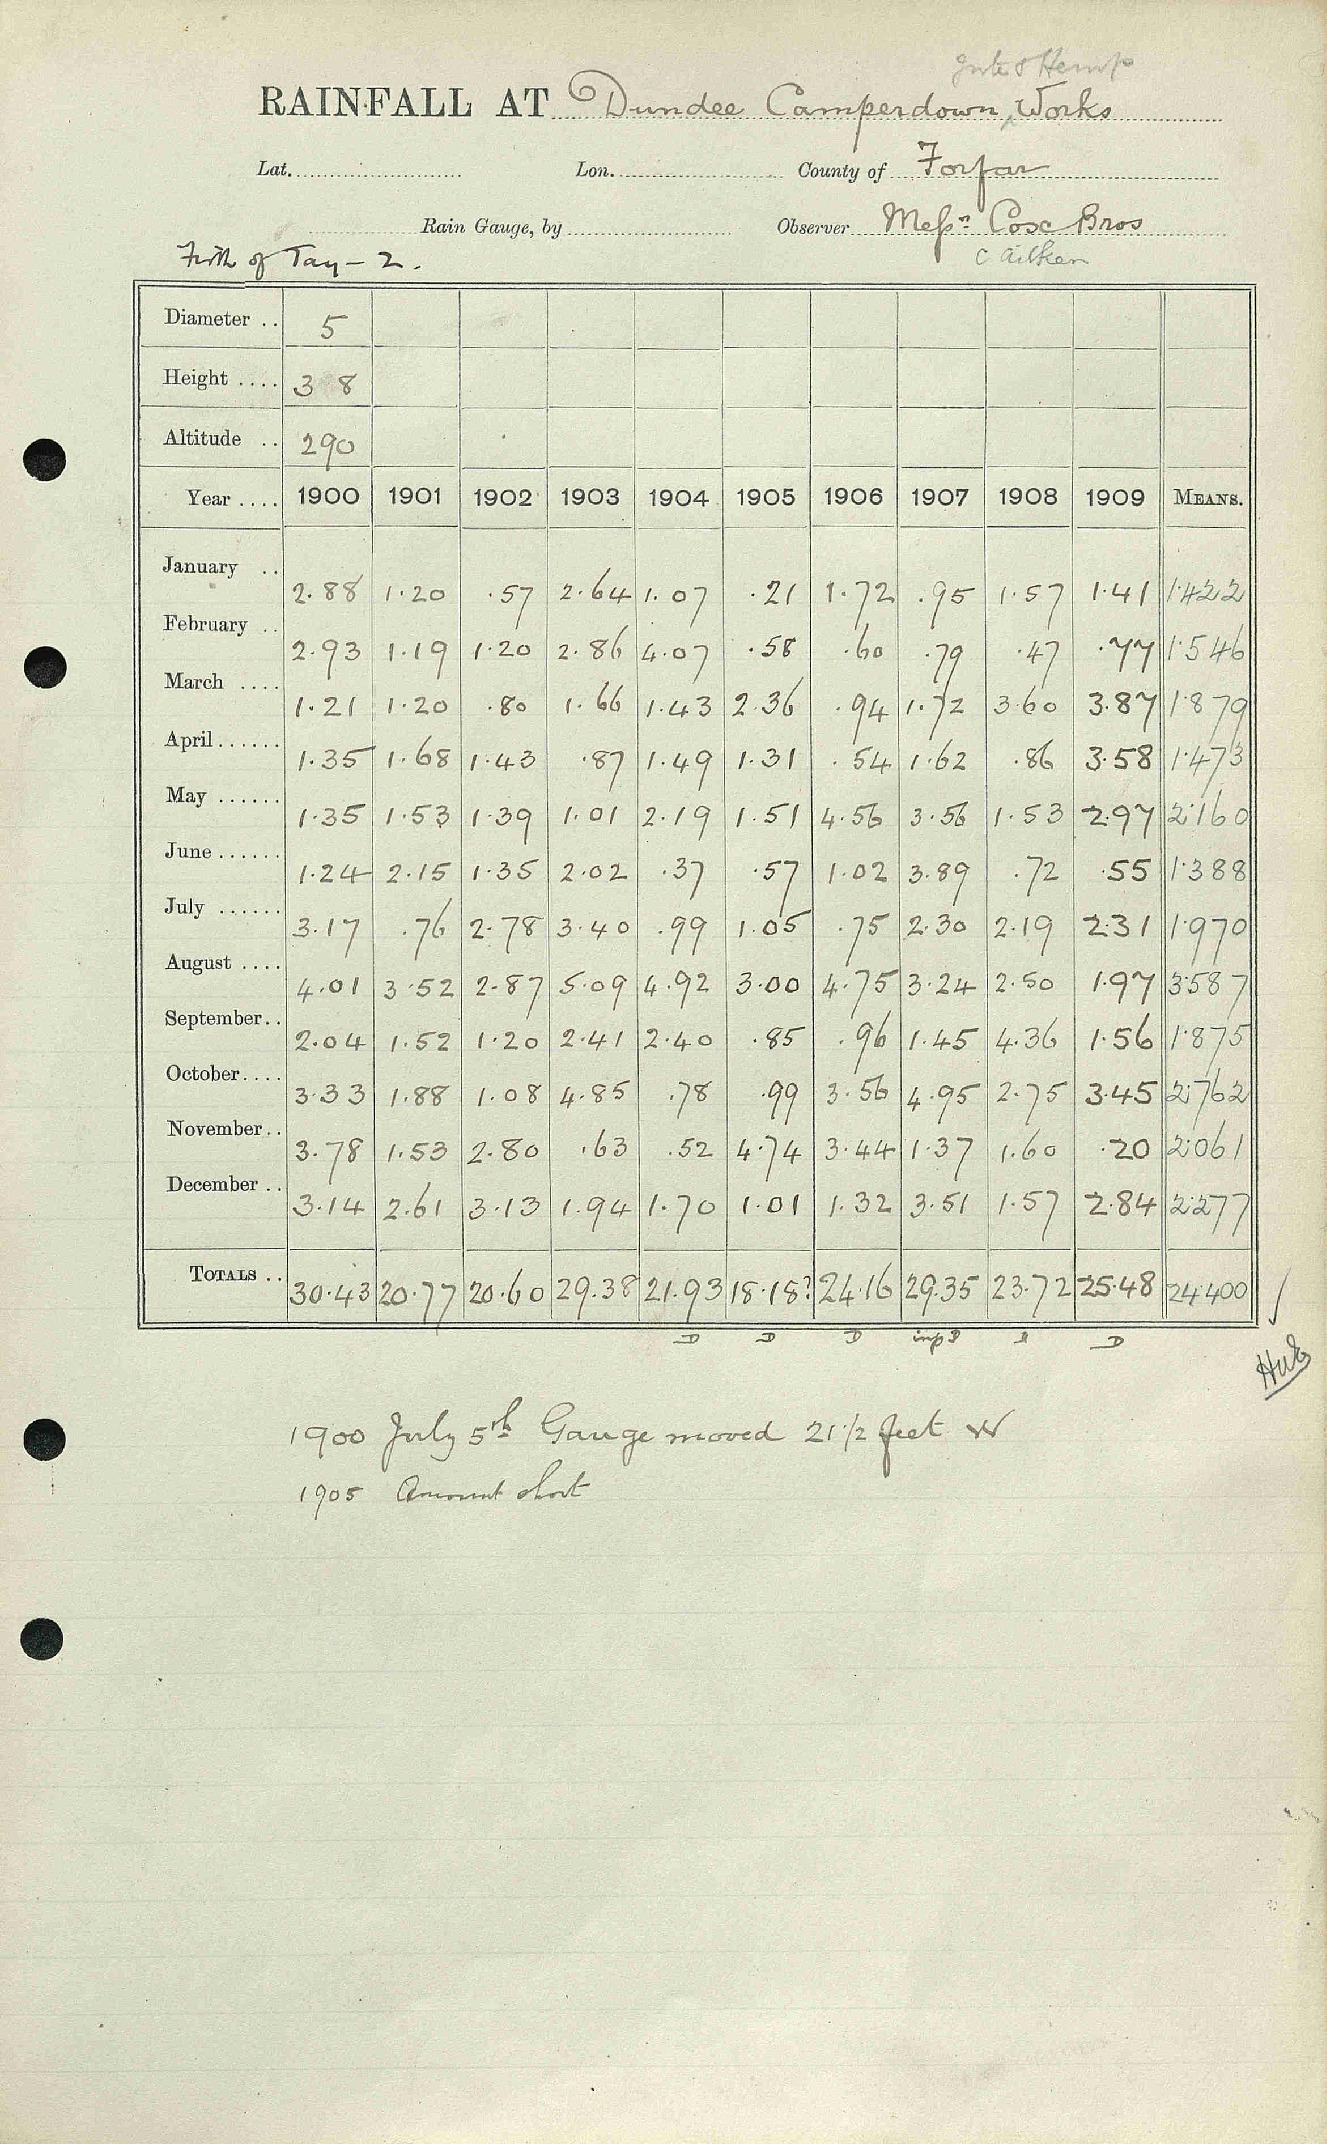 Jute & Hemp
RAINFALL AT Dundee Camperdown Works
Lat. Lon. County of Forfar
Rain Gauge, by Observer Messrs Cox Bros
Firth of Tay – 2. C Aitken
Diameter .. 5
Height .... 3 8
Altitude .. 290
Year .... 1900 1901 1902 1903 1904 1905 1906 1907 1908 1909 MEANS.
January .. 2.88 1.20 .57 2.64 1.07 .21 1.72 .95 1.57 1.41 1.422
February .. 2.93 1.19 1.20 2.86 4.07 .58 .60 .79 .47 .77 1.546
March .... 1.21 1.20 .80 1.66 1.43 2.36 .94 1.72 3.60 3.87 1.879
April ...... 1.35 1.68 1.43 .87 1.49 1.31 .54 1.62 .86 3.58 1.473
May ...... 1.35 1.53 1.39 1.01 2.19 1.51 4.56 3.56 1.53 2.97 2.160
June ...... 1.24 2.15 1.35 2.02 .37 .57 1.02 3.89 .72 .55 1.388
July ...... 3.17 .76 2.78 3.40 .99 1.05 .75 2.30 2.19 2.31 1.970
August .... 4.01 3.52 2.87 5.09 4.92 3.00 4.75 3.24 2.50 1.97 3.587
September .. 2.04 1.52 1.20 2.41 2.40 .85 .96 1.45 4.36 1.56 1.875
October .... 3.33 1.88 1.08 4.85 .78 .99 3.56 4.95 2.75 3.45 2.762
November .. 3.78 1.53 2.80 .63 .52 4.74 3.44 1.37 1.60 .20 2.061
December .. 3.14 2.61 3.13 1.94 1.70 1.01 1.32 3.51 1.57 2.84 2.277
TOTALS .. 30.43 20.77 20.60 29.38 21.93 18.18? 24.16 29.35 23.72 25.48 24.400
D D D D
1900 July 5th Gauge moved 21 1/2 feet W
1905 Amount short